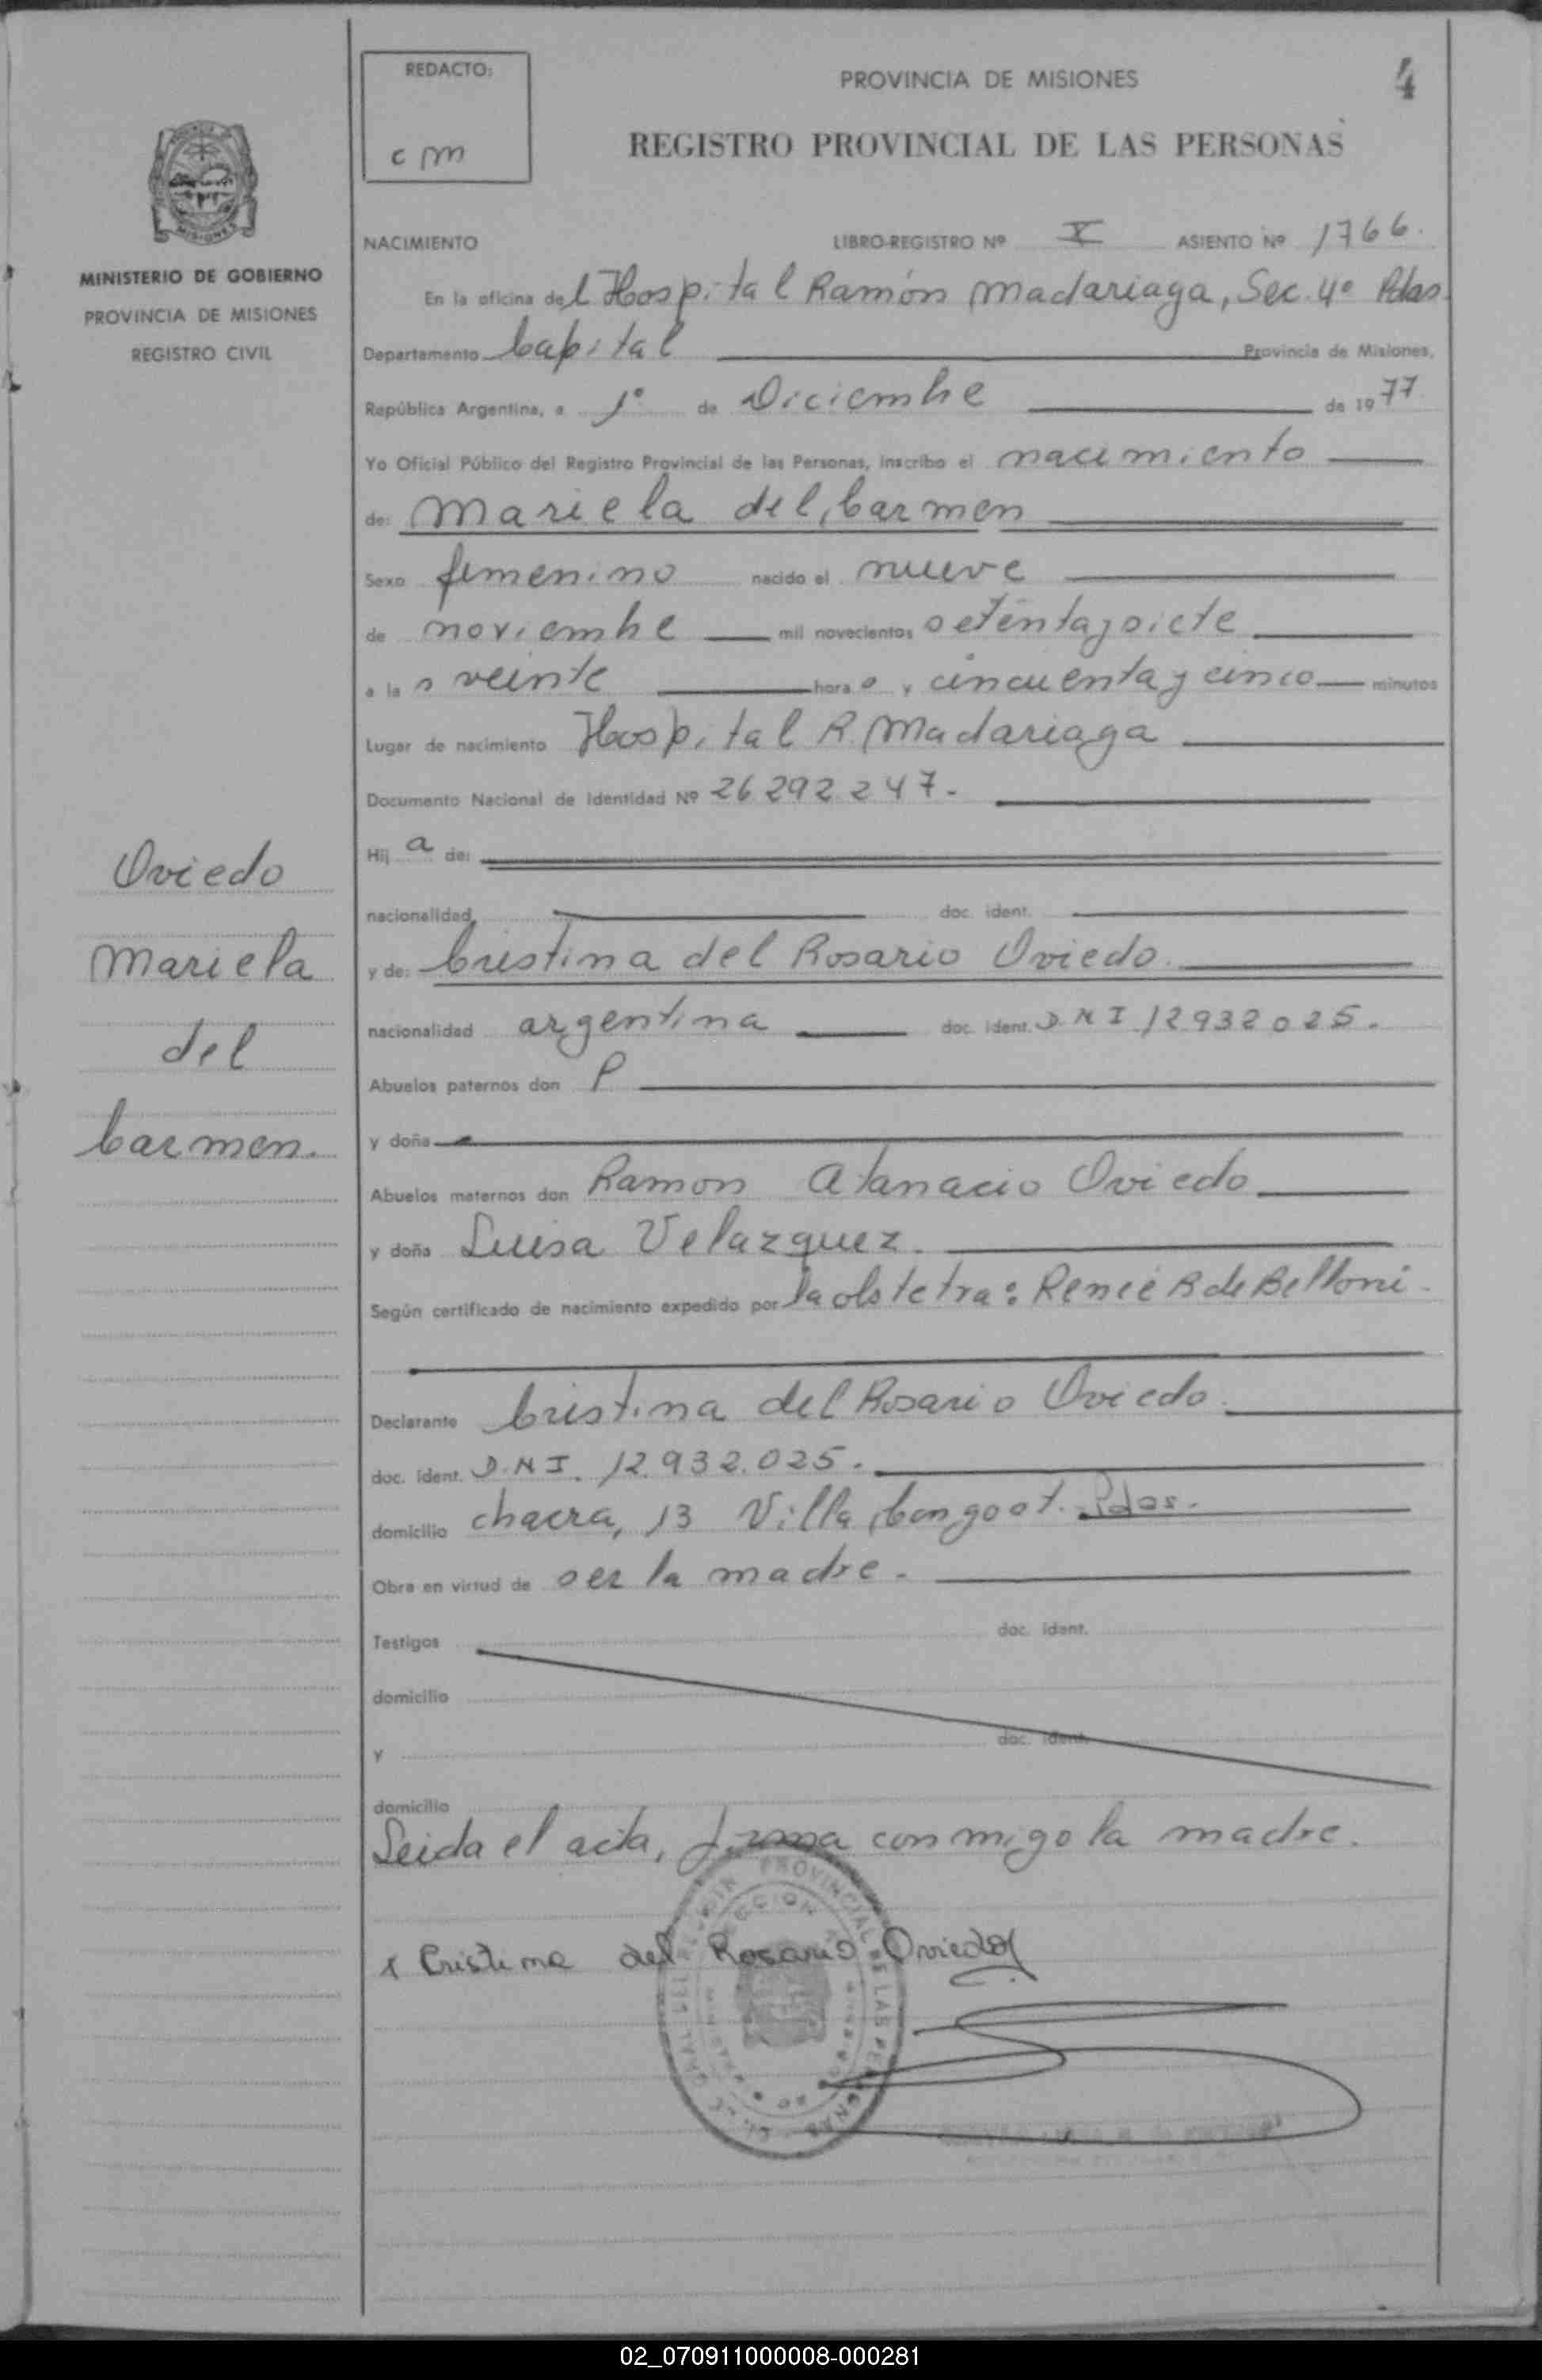 REDACTO:
c m
PROVINCIA DE MISIONES
4
REGISTRO PROVINCIAL DE LAS PERSONAS
MISIONES
MINISTERIO DE GOBIERNO
PROVINCIA DE MISIONES
REGISTRO CIVIL
NACIMIENTO LIBRO-REGISTRO Nº X ASIENTO Nº 1766.
En la oficina del Hospital Ramón Madariaga, Sec. 4º Pdas.
Departamento Capital Provincia de Misiones,
República Argentina, a 1º de Diciembre de 1977
Yo Oficial Público del Registro Provincial de las Personas, inscribo el nacimiento
de: Mariela del Carmen
Sexo femenino nacido el nueve
de noviembre mil novecientos setenta y siete
a las veinte horas y cincuenta y cinco minutos
Lugar de nacimiento Hospital R. Madariaga
Documento Nacional de Identidad Nº 26 292 247.
Hija de:
nacionalidad doc. ident.
y de: Cristina del Rosario Oviedo.
nacionalidad argentina doc. ident. D N I 12932025.
Abuelos paternos don P
y doña
Abuelos maternos don Ramon Atanacio Oviedo
y doña Luisa Velazquez.
Según certificado de nacimiento expedido por la obstetra: Renée B de Belloni.
Declarante Cristina del Rosario Oviedo.
doc. ident. D.N.I. 12.932.025.
domicilio chacra, 13 Villa Pdas.
Obra en virtud de ser la madre.
Testigos doc. ident.
domicilio
y doc. ident.
domicilio
Leida el acta, firma conmigo la madre.
x Cristina del Rosario Oviedo
Oviedo
Mariela
del
Carmen.
PROVINCIAL DE LAS PERSONAS
02_070911000008-000281